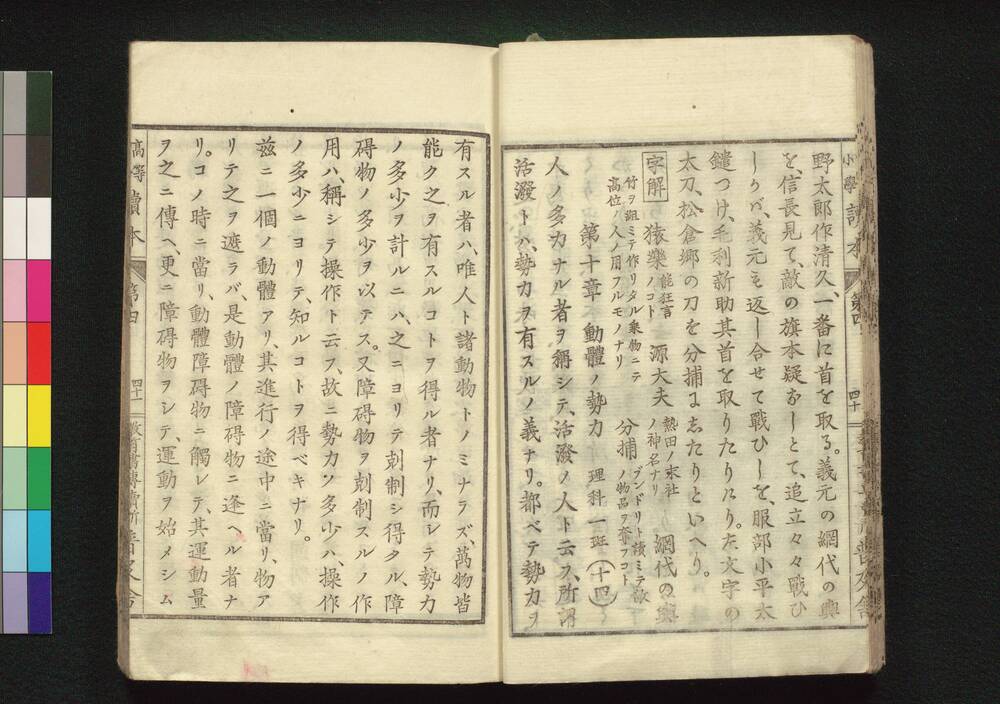 小學讀本
第四
四十
普及舍
野太郎作清久、一番に首を取る。義元の網代の輿
を、信長見て、敵の旗本疑なしとて、追立々々戰ひ
しかバ、義元も返し合せて戰ひしを、服部小平太
鑓つけ、毛利新助其首を取りたりけり。左文字の
太刀、松倉郷の刀を分捕にしたりといへり。
字解 猿樂 能狂言ノコト 源大夫 熱田ノ末社ノ神名ナリ 網代の輿
竹ヲ組ミテ作リタル乘物ニテ高位ノ人ノ用フルモノナリ 分捕 ブンドリト讀ミテ敵ノ物品ヲ奪フコト
第十章 動體ノ勢力 理科一斑(十四)
人ノ多力ナル者ヲ稱シテ、活潑ノ人ト云フ、所謂
活潑トハ、勢力ヲ有スルノ義ナリ。都ベテ勢力ヲ
有スル者ハ、唯人ト諸動物トノミナラズ、萬物皆
能ク之ヲ有スルコトヲ得ル者ナリ、而レテ勢力
ノ多少ヲ計ルニハ、之ニヨリテ刺制シ得タル、障
碍物ノ多少ヲ以テス。又障碍物ヲ刺制スルノ作
用ハ、稱シテ操作ト云フ、故ニ勢力ノ多少ハ、操作
ノ多少ニヨリテ、知ルコトヲ得ベキナリ。
茲ニ一個ノ動體アリ、其進行ノ途中ニ當リ、物ア
リテ之ヲ遮ラバ、是動體ノ障碍物ニ逢ヘル者ナ
リ。コノ時ニ當リ、動體障碍物ニ觸レテ、其運動量
ヲ之ニ傳ヘ、更ニ障碍物ヲシテ、運動ヲ始メシム
高等讀本
第四
四十一
教育書專賣所 普及舍